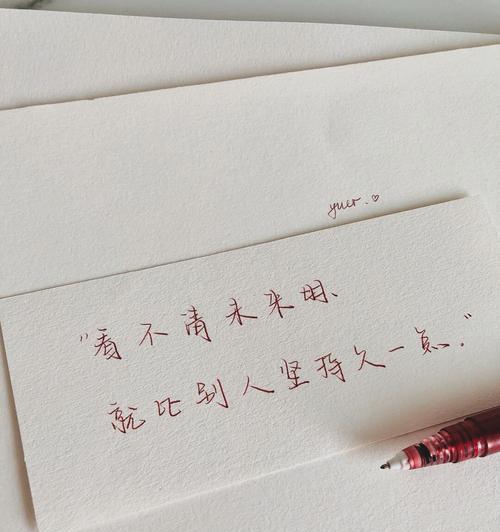 yuer.♡
“看不清未来时、
就比别人坚持久一点.”